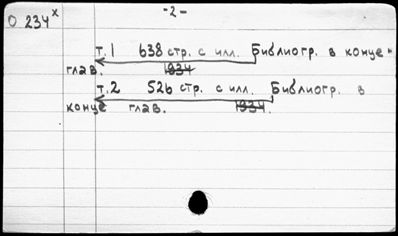 - 2 -
О 234ˣ
т. 1 638 стр. с илл. Библиогр. в конце
глав. 1934
т. 2 526 стр. с илл. Библиогр. в
конце глав. 1934.